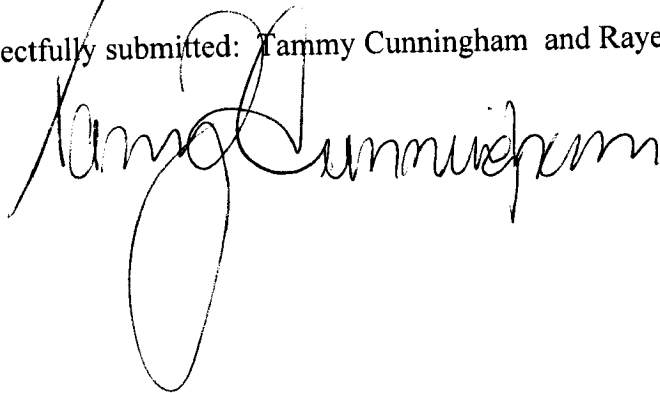 ectfully submitted: Tammy Cunningham and Raye
Tammy Cunningham